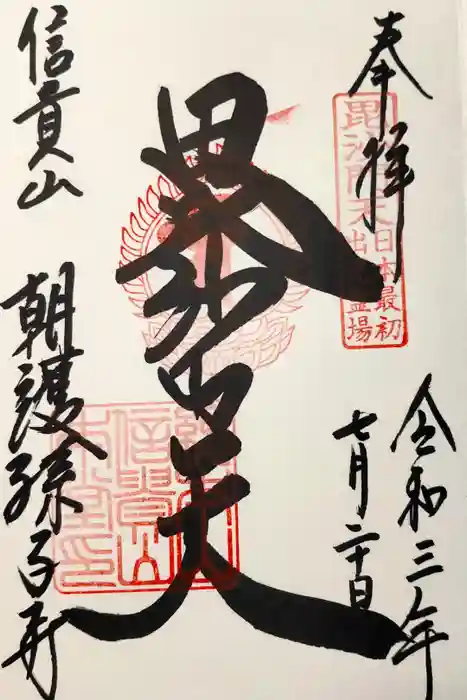 奉拝
毘沙門天
日本最初
出現霊場
令和三年
七月二十日
毘沙門天
信貴山
朝護孫子寺